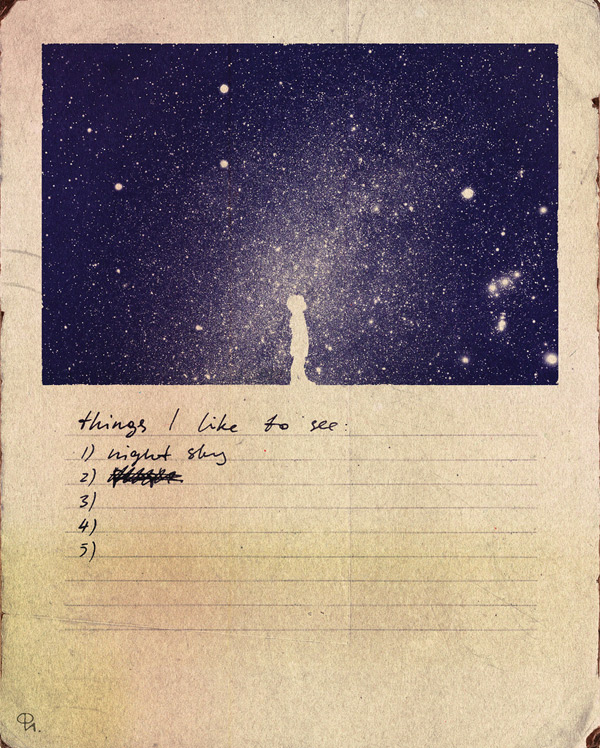 things I like to see:
1) night sky
2)
3)
4)
5)